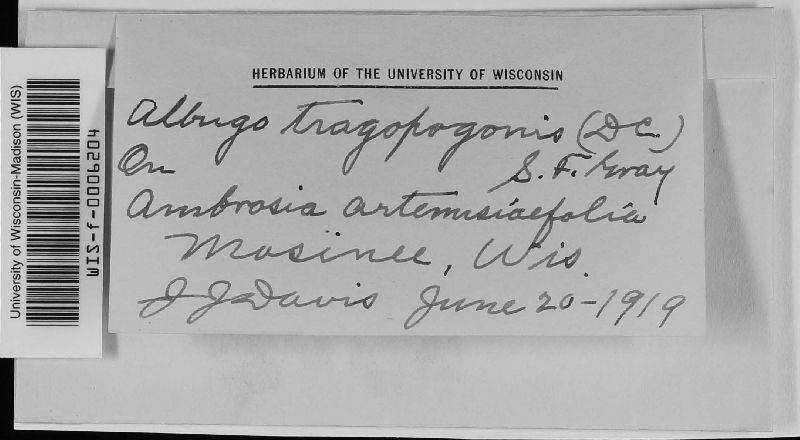 University of Wisconsin-Madison (WIS)
WIS-f-0006204
HERBARIUM OF THE UNIVERSITY OF WISCONSIN
Albugo tragopogonis (DC.)
On S. F. Gray
Ambrosia artemisiaefolia
Mosinee, Wis.
J J Davis June 20-1919